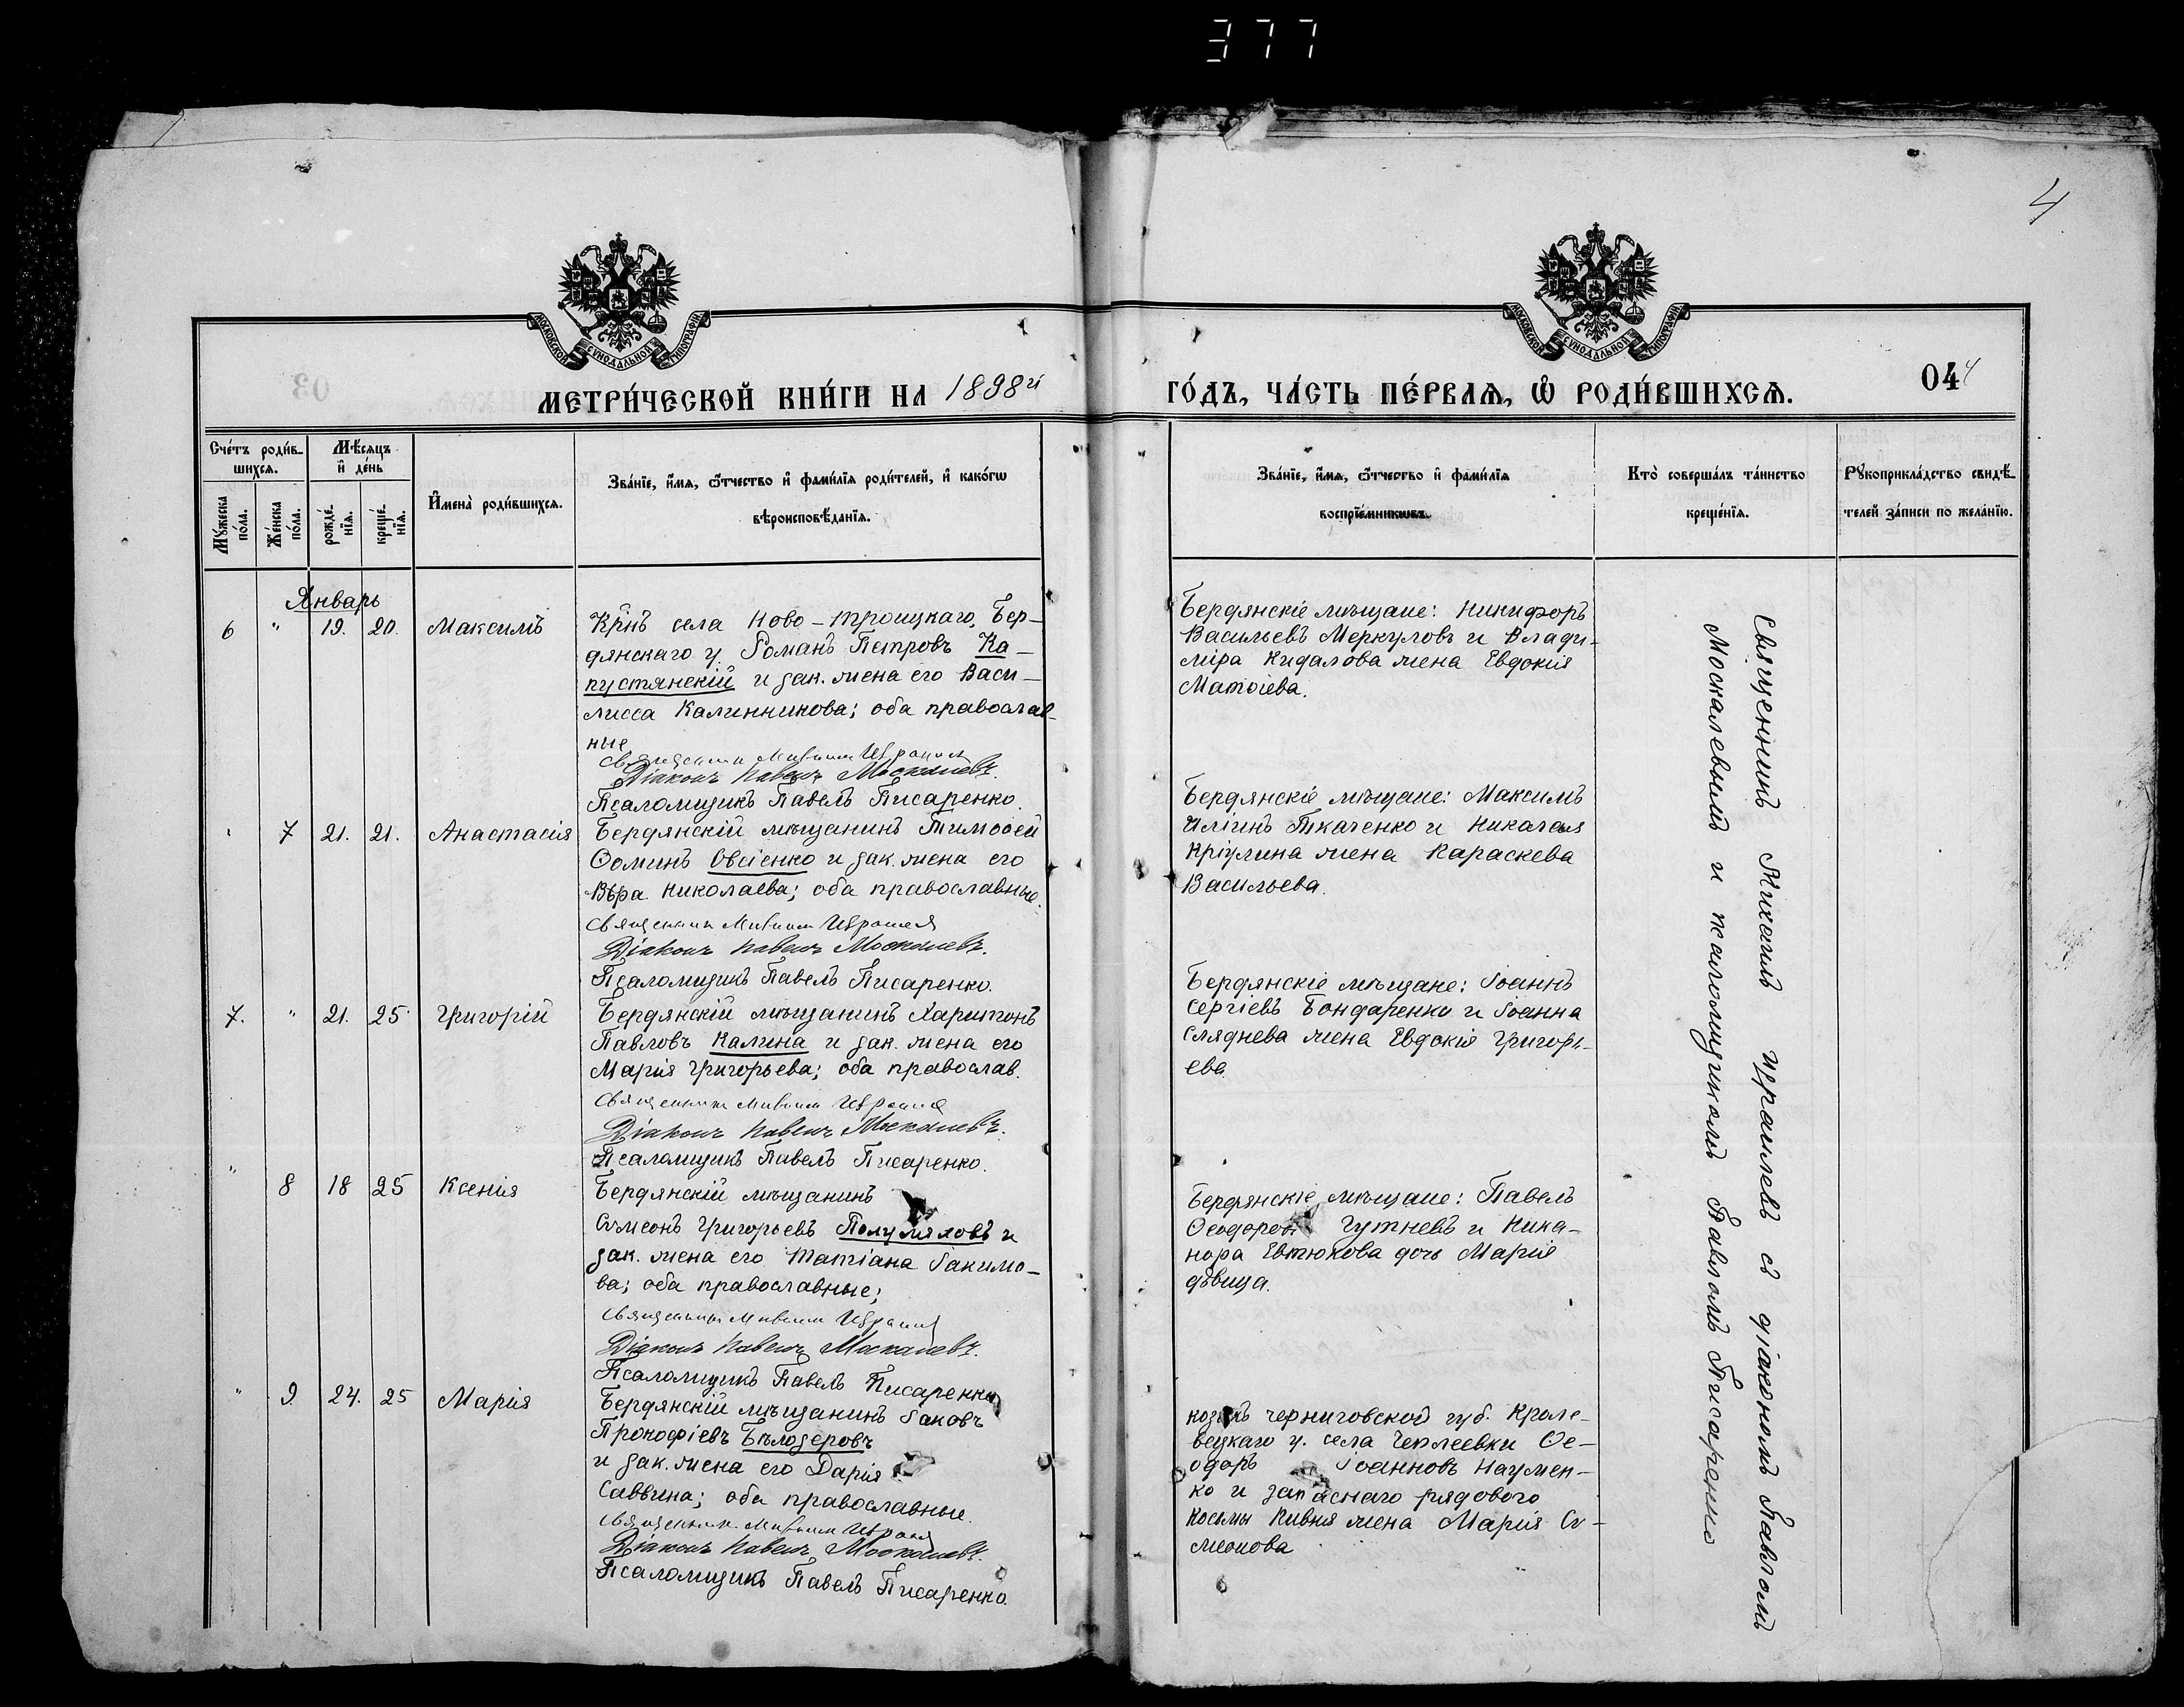 377
4
МОСКОВСКОЙ СѴНОДАЛЬНОЙ ТИПОГРАФІИ
МОСКОВСКОЙ СѴНОДАЛЬНОЙ ТИПОГРАФІИ
МЕТРИ́ЧЕСКОЙ КНИ́ГИ НА 1898й
ГО́ДЪ, ЧА́СТЬ ПЕ́РВАѦ, Ѽ РОДИ́ВШИХСѦ.
04 4
Сче́тъ роди́в-
шихсѧ.
Мꙋ́жеска по́ла.
Же́нска по́ла.
Мѣ́сѧцъ
и де́нь
рожде́нїѧ.
креще́нїѧ.
И҆мена̀ роди́вшихсѧ.
Зва́нїе, и҆́мѧ, ѻ҆́тчество и҆ фами́лїѧ роди́телей, и҆ како́гѡ
вѣроисповѣ́данїѧ.
Зва́нїе, и҆́мѧ, ѻ҆́тчество и҆ фами́лїѧ
воспрїе́мникѡвъ.
Кто̀ соверша́лъ та́инство
креще́нїѧ.
Рꙋкоприкла́дство свидѣ́-
телей за́писи по жела́нїю.
Январь
6 " 19. 20. Максимъ
Крнъ села Ново-Троицкаго, Бер-
дянскаго у. Романъ Петровъ Ка-
пустянскій и зак. жена его Васи-
лисса Калинникова; оба православ-
ные
Священникъ Михаилъ Израилевъ
Діаконъ Павелъ Москалевъ.
Псаломщикъ Павелъ Писаренко.
Бердянскіе мѣщане: Никифоръ
Васильевъ Меркуловъ и Влади-
міра Кидалова жена Евдокія
Матѳіева.
" 7 21. 21. Анастасія
Бердянскій мѣщанинъ Тимоѳей
Ѳоминъ Овсіенко и зак. жена его
Вѣра Николаева; оба православные.
Священникъ Михаилъ Израилевъ
Діаконъ Павелъ Москалевъ.
Псаломщикъ Павелъ Писаренко.
Бердянскіе мѣщане: Максимъ
Иліинъ Ткаченко и Николая
Кріулина жена Параскева
Васильева.
7. " 21. 25. Григорій
Бердянскій мѣщанинъ Харитонъ
Павловъ Калина и зак. жена его
Марія Григорьева; оба православ.
Священникъ Михаилъ Израилевъ
Діаконъ Павелъ Москалевъ.
Псаломщикъ Павелъ Писаренко.
Бердянскіе мѣщане: Іоаннъ
Сергіевъ Бондаренко и Іоанна
Сляднева жена Евдокія Григорь-
ева
" 8 18 25 Ксенія
Бердянскій мѣщанинъ
Сѵмеонъ Григорьевъ Полуляховъ и
зак. жена его Татіана Іакимо-
ва; оба православные;
Священникъ Михаилъ Израилевъ
Діаконъ Павелъ Москалевъ.
Псаломщикъ Павелъ Писаренко
Бердянскіе мѣщане: Павелъ
Ѳеодоровъ Гутневъ и Ника-
нора Евтюхова дочь Марія
дѣвица.
" 9. 24. 25 Марія
Бердянскій мѣщанинъ Іаковъ
Прокофіевъ Бѣлозеровъ
и зак. жена его Дарія
Саввина; оба православные.
Священникъ Михаилъ Израилевъ
Діаконъ Павелъ Москалевъ.
Псаломщикъ Павелъ Писаренко.
козакъ Черниговской губ. Кроле-
вецкаго у. села Чеплеевки Ѳе-
одоръ Іоанновъ Наумен-
ко и запаснаго рядового
Космы Кивня жена Марія Сѵ-
меонова
Священникъ Михаилъ Израилевъ съ діакономъ Павломъ
Москалевымъ и псаломщикомъ Павломъ Писаренко